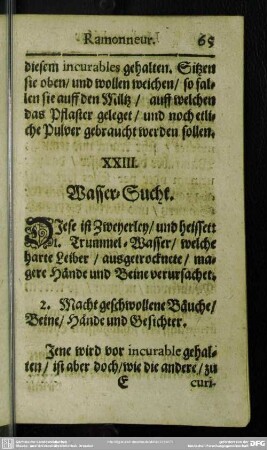 Ramonneur. 65
diesem incurables gehalten. Sitzen
sie oben / und wollen weichen / so fal-
len sie auff den Miltz / auff welchen
das Pflaster geleget / und noch etli-
che Pulver gebraucht werden sollen.
XXIII.
Wasser-Sucht.
Diese ist Zweyerley / und heissett
1. Trummel-Wasser / welche
harte Leiber / ausgetrocknete / ma-
gere Hände und Beine verursachet.
2. Macht geschwollene Bäuche /
Beine / Hände und Gesichter.
Jene wird vor incurable gehal-
ten / ist aber doch / wie die andere / zu
E curi-